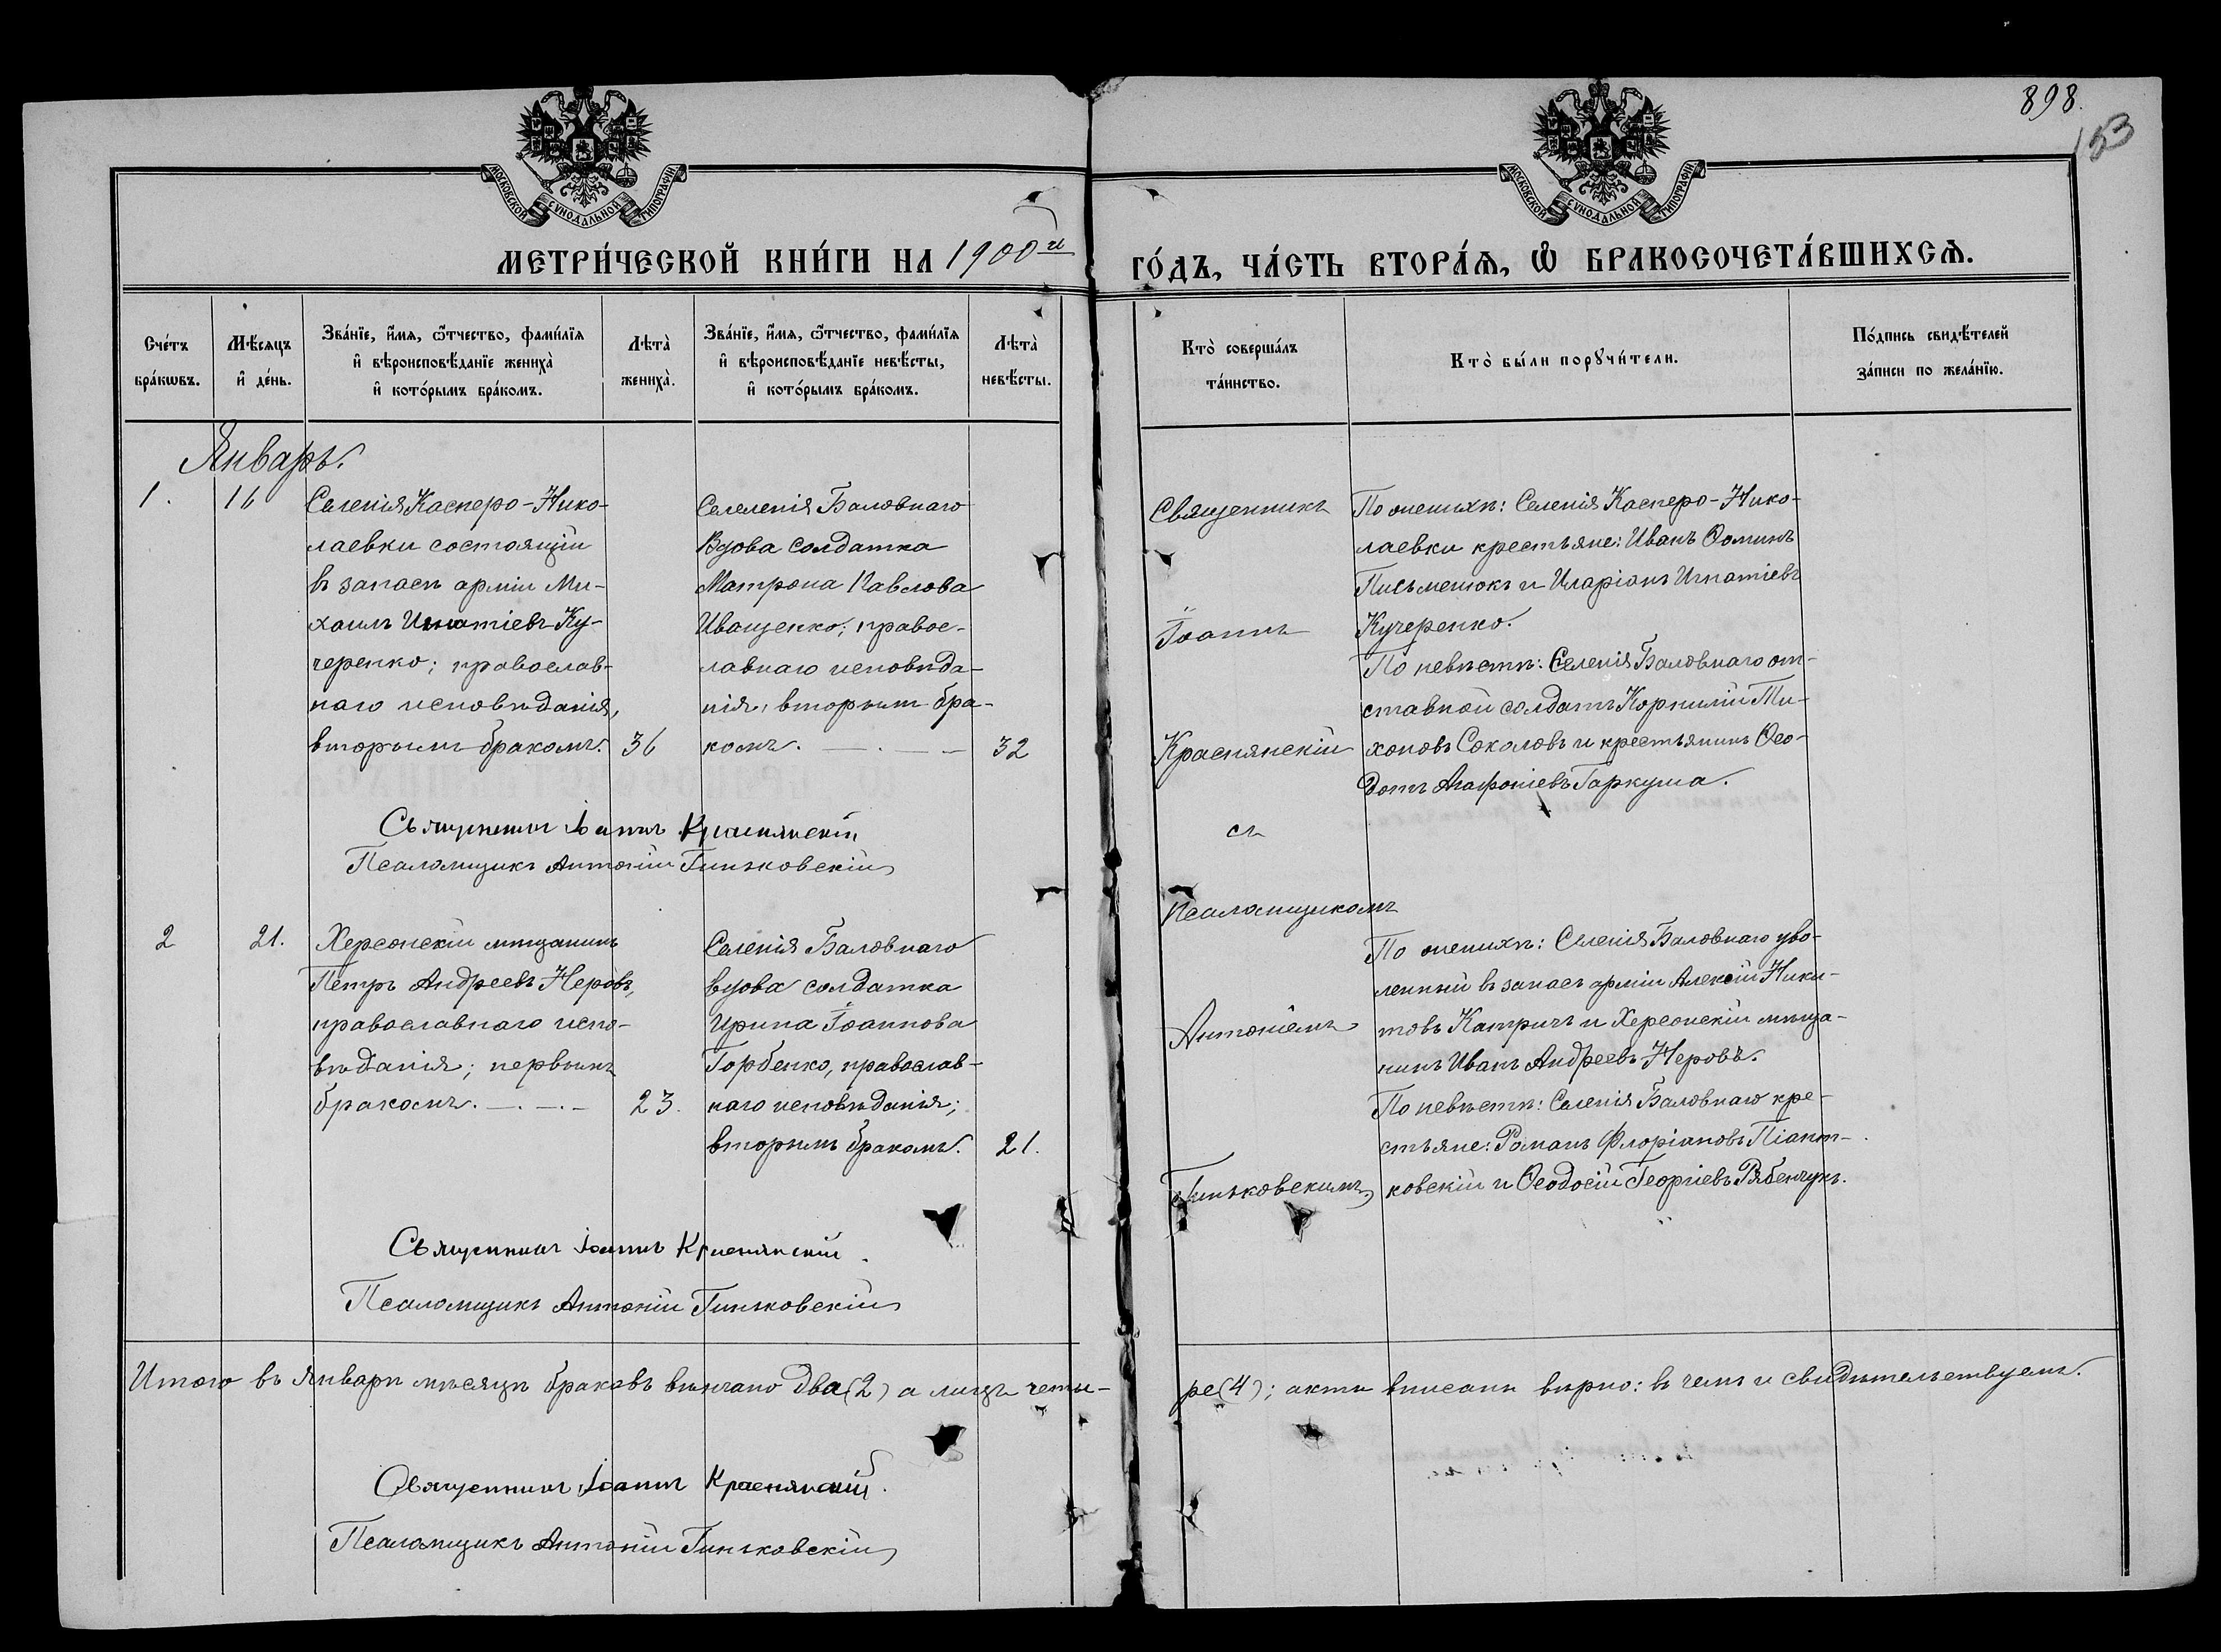 898.
153
МОСКОВСКОЙ СѴНОДАЛЬНОЙ ТИПОГРАФІИ
МОСКОВСКОЙ СѴНОДАЛЬНОЙ ТИПОГРАФІИ
МЕТРИ́ЧЕСКОЙ КНИ́ГИ НА 1900й ГО́ДЪ, ЧА́СТЬ ВТОРА́Я, Ѡ БРАКОСОЧЕТА́ВШИХСЯ.
Сче́тъ
бра́кѡвъ.
Мѣ́сяцъ
и҆ де́нь.
Зва́нїе, и҆́мя, ѻ҆́тчество, фами́лїя
и҆ вѣроисповѣ́данїе жениха̀
и҆ кото́рымъ бра́комъ.
Лѣта̀
жениха̀.
Зва́нїе, и҆́мя, ѻ҆́тчество, фами́лїя
и҆ вѣроисповѣ́данїе невѣ́сты,
и҆ кото́рымъ бра́комъ.
Лѣта̀
невѣ́сты.
Кто̀ соверша́лъ
та́инство.
Кто̀ бы́ли порꙋчи́тели.
По́дпись свидѣ́телей
за́писи по жела́нїю.
Январь.
1.
16
Селенія Касперо-Нико-
лаевки состоящій
въ запасѣ арміи Ми-
хаилъ Игнатіевъ Ку-
черенко; православ-
наго исповѣданія,
вторымъ бракомъ. 36
Селеленія Баловнаго
Вдова солдатка
Матрона Павлова
Иващенко; правос-
лавнаго исповѣда-
нія, вторымъ бра-
комъ. 32
Священникъ
Іоаннъ
Краснянскій
съ
Псаломщикомъ
Антоніемъ
Гинтковскимъ
По женихѣ: Селенія Касперо-Нико-
лаевки крестьяне: Иванъ Ѳоминъ
Письменюкъ и Иларіонъ Игнатіевъ
Кучеренко.
По невѣстѣ: Селенія Баловнаго от-
ставной солдатъ Корнилій Ти-
хоновъ Соколовъ и крестьянинъ Ѳео-
дотъ Агафоніевъ Гаркуша.
Священникъ Іоаннъ Краснянскій
Псаломщикъ Антоній Гинтковскій
2
21.
Херсонскій мѣщанинъ
Петръ Андреевъ Неровъ,
православнаго испо-
вѣданія; первымъ
бракомъ. 23.
Селенія Баловнаго
вдова солдатка
Ирина Іоаннова
Горбенко, православ-
наго исповѣданія;
вторымъ бракомъ. 21.
По женихѣ: Селенія Баловнаго уво-
ленный въ запасъ арміи Алексій Ники-
товъ Катричъ и Херсонскій мѣща-
нинъ Иванъ Андреевъ Неровъ.
По невѣстѣ: Селенія Баловнаго кре-
стьяне: Романъ Флоріановъ Піонт-
ковскій и Ѳеодосій Георгіевъ Рябенчукъ.
Священникъ Іоаннъ Краснянскій.
Псаломщикъ Антоній Гинтковскій
Итого въ Январѣ мѣсяцѣ браковъ вѣнчано два (2) а лицъ четы-
ре (4); акты вписаны вѣрно: въ чемъ и свидѣтельствуемъ.
Священникъ Іоаннъ Краснянскій.
Псаломщикъ Антоній Гинтковскій